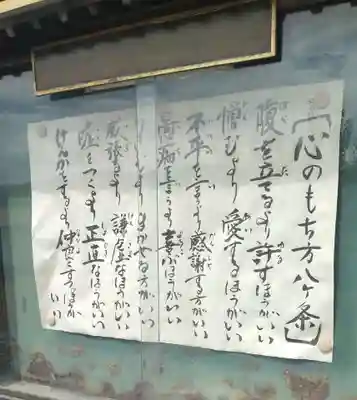 【心のもち方八ケ条】
腹を立てるより許すほうがいい
憎むより愛するほうがいい
不平を言うより感謝する方がいい
愚痴を言うより喜ぶほうがいい
より まかせる方がいい
威張るより謙虚なほうがいい
嘘をつくより正直なほうがいい
けんかをするより仲直りするほうがいい